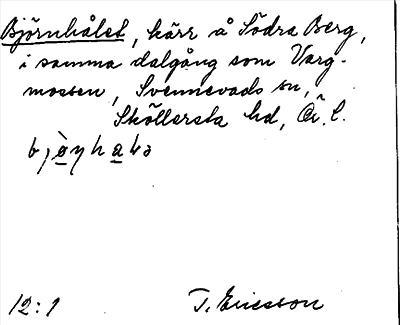 Björnhålet, kärr å Södra Berg,
i samma dalgång som Varg-
mossen, Svennevads sn,
Sköllersta hd, Ör. l.
12:1 T. Ericsson